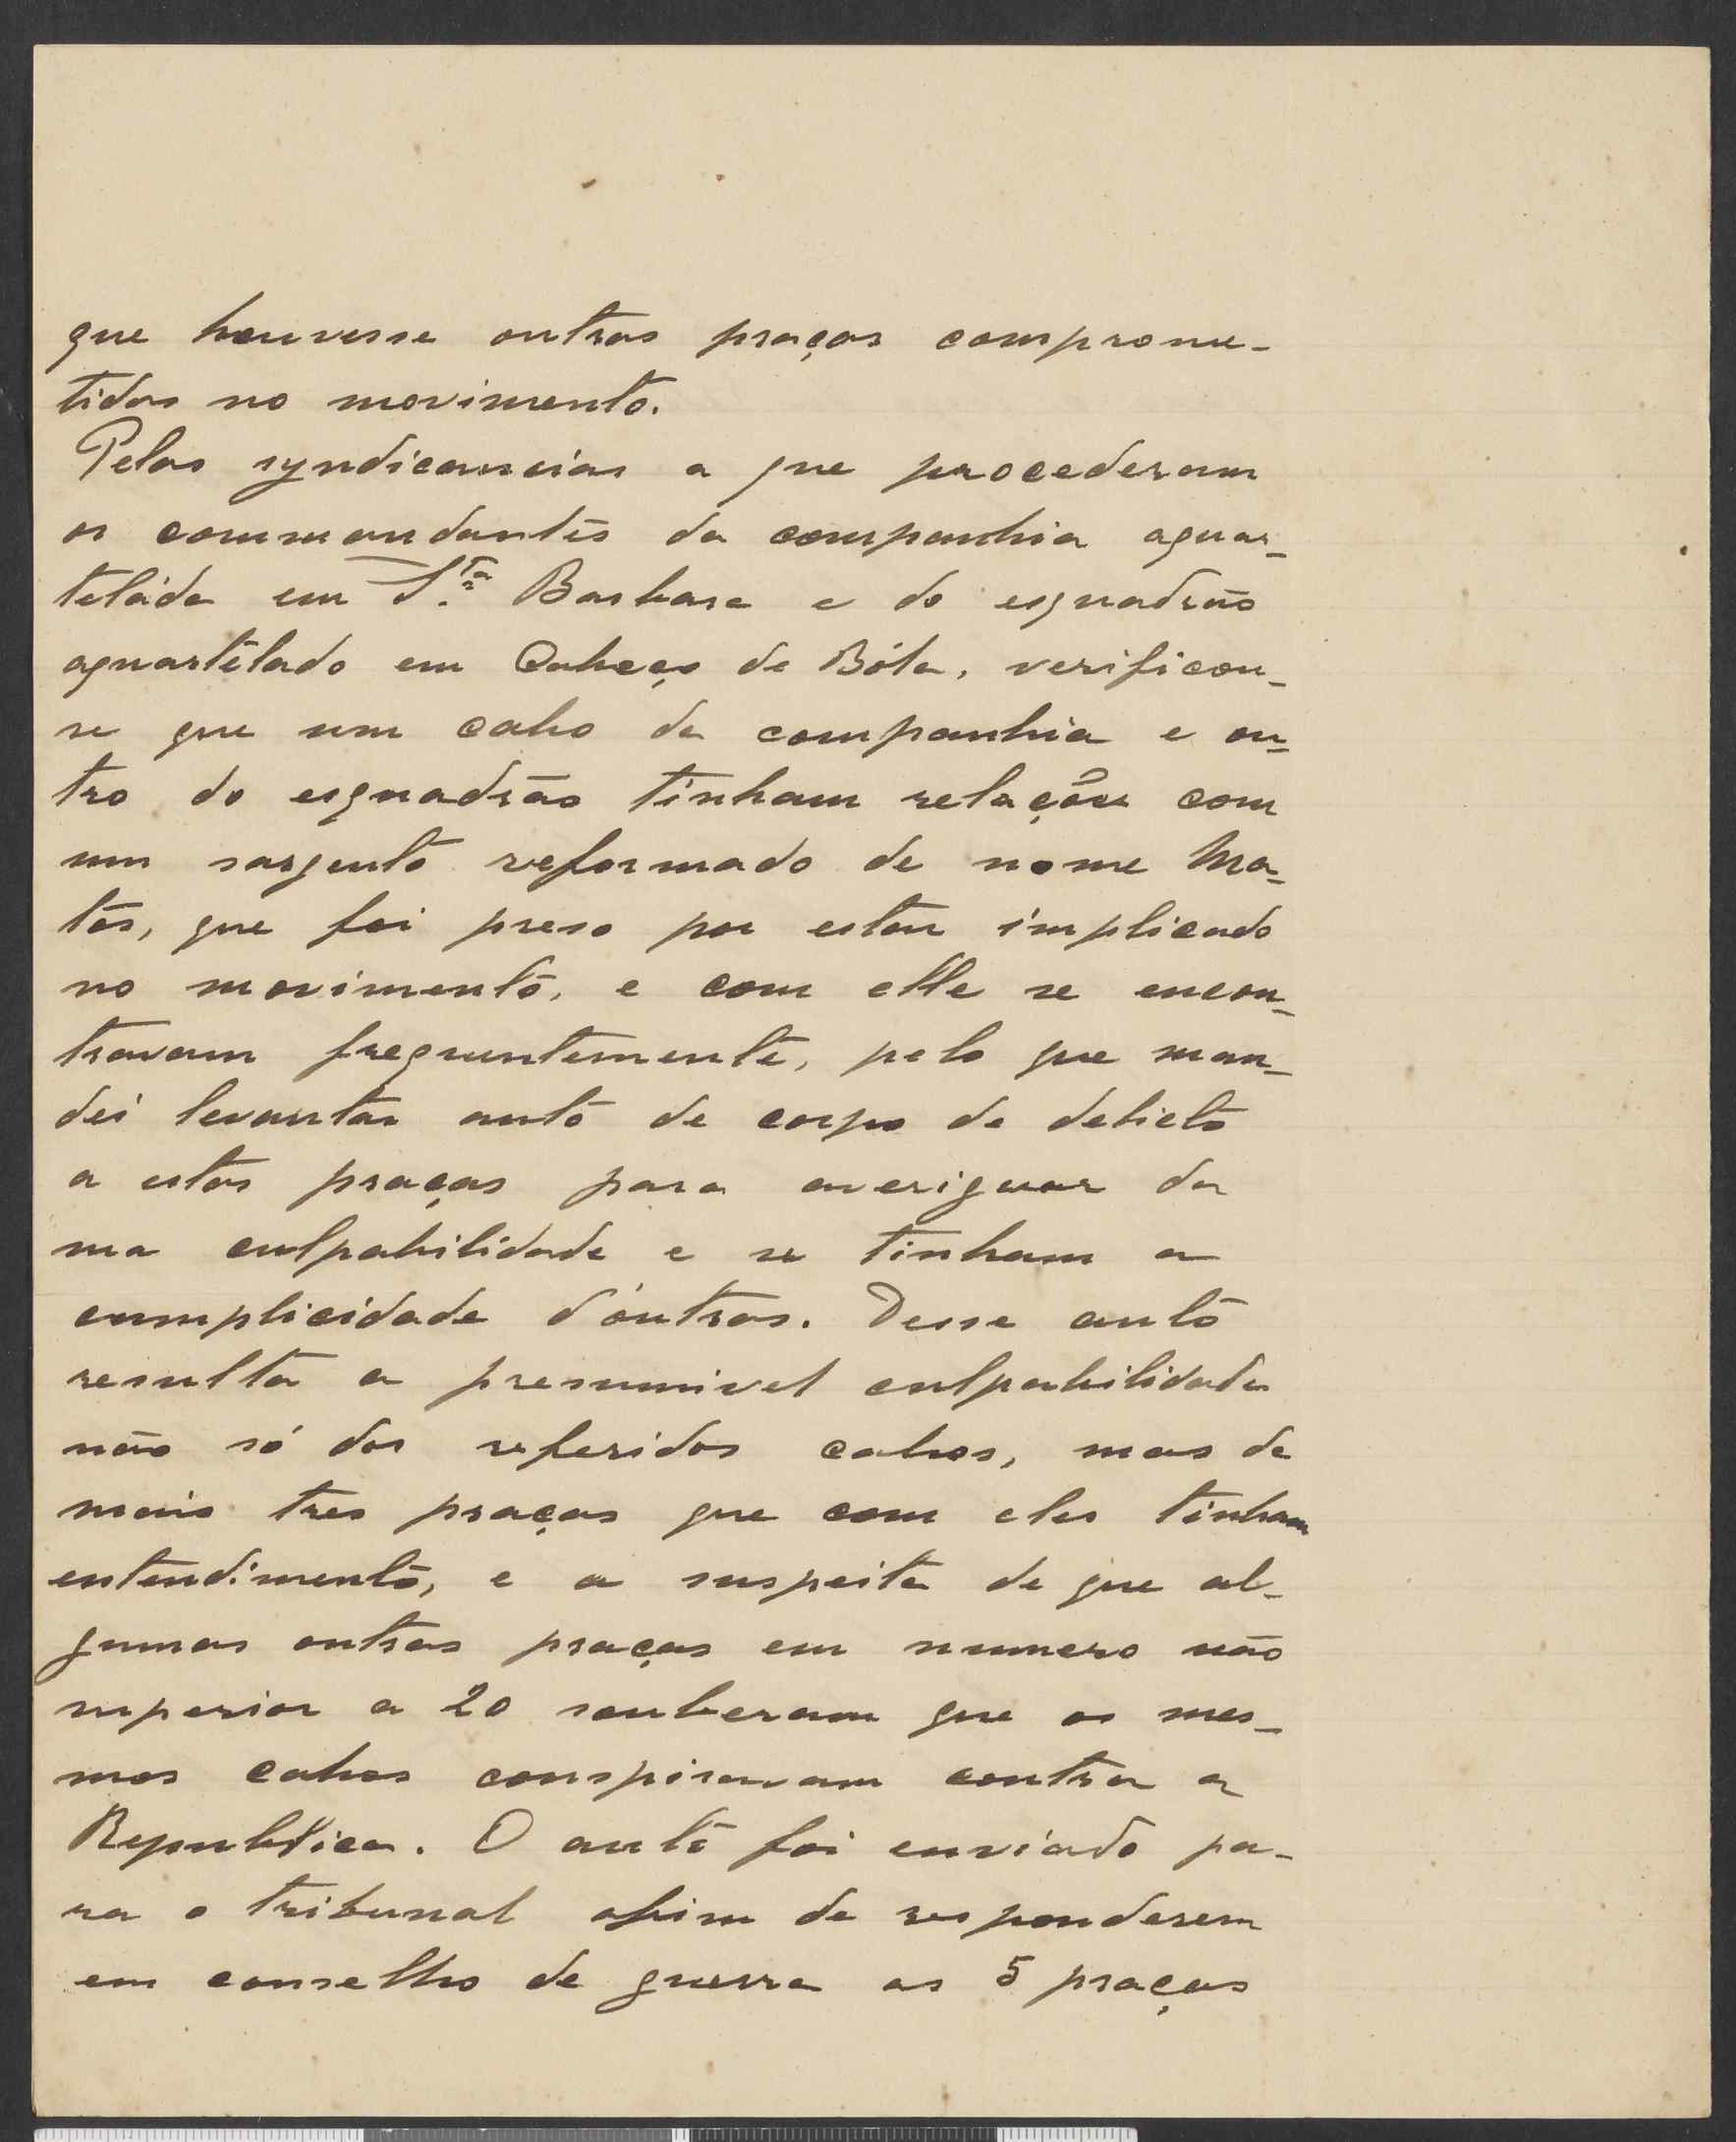 que houvesse outras praças comprome-
tidas no movimento.
Pelas syndicancias a que procederam
os commandantes da companhia aquar-
teláda em S.ta Barbara e do esquadrão
aquartelado em Cabeço de Bóla, verificou-
se que um cabo da companhia e ou-
tro do esquadrão tinham relações com
um sargento reformado de nome Ma-
tos, que foi preso por estar implicado
no movimento, e com elle se encon-
travam frequentemente, pelo que man-
dei levantar auto de corpo de delicto
a estas praças para averiguar da
sua culpabilidade e se tinham a
cumplicidade d'outras. Desse auto
resulta a presumivel culpabilidade
não só dos referidos cabos, mas de
mais tres praças que com eles tinham
entendimento, e a suspeita de que al-
gumas outras praças em numero não
superior a 20 souberam que os mes-
mos cabos conspiravam contra a
Republica. O auto foi enviado pa-
ra o tribunal afim de responderem
em conselho de guerra as 5 praças